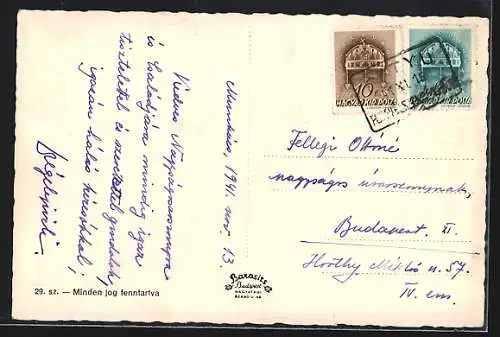 Munkács, 1941. nov. 13.
Kedves Nagyságos asszonyom
és családjára mindig igaz
tisztelettel és szeretettel gondolok,
igazán hálás
29. sz. — Minden jog fenntartva
Barasits
Budapest
10
MAGYAR KIR. POSTA
MAGYAR KIR. POSTA
Fellegi Ottóné
nagyságos úrasszonynak,
Budapest. XI.
Horthy Miklós u. 57.
IV. em.